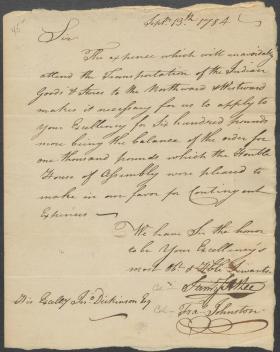 Sept. 13th 1784
Sir
The expence which will unavoidably
attend the Transportation of the Indian
Goods & Stores to the Northward & Westward
makes it necessary for us to apply to
Your Excellency for Six hundred pounds
more being the balance of the order for
one thousand pounds which the Honble
House of Assembly were pleased to
make in our favor for Contingent
Expences —
We have Sir the honor
to be Your Excellency's
most Obt. & Hble Servants
Saml Atlee
Fra. Johnston
His Excelly Jno. Dickinson Esq